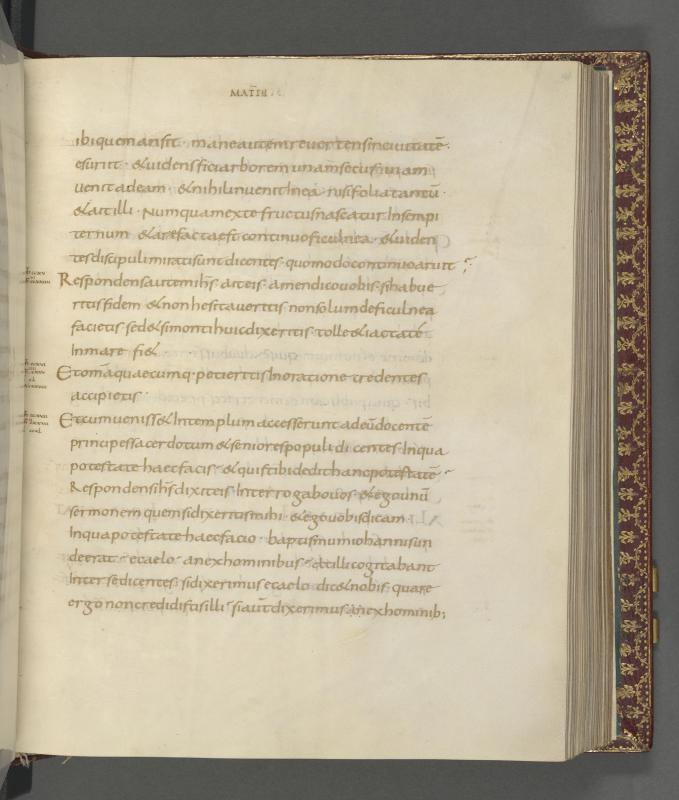 MATTH
ibi quem ansit · mane autem revertens in civitatē ·
esuriit · & videns fici arborem unam secus viam
venit ad eam · & nihil invenit In ea nisi folia tantū ·
& ait illi · Numquam ex te fructus nascatur In sempi
ternum & arefacta est continuo ficulnea · & viden
tes discipuli mirati sunt dicentes · quomodo continuo aruit ;
Respondens autem ihs ait eis · amen dico vobis · si habue
ritis fidem & non hesitaveritis non solum de ficulnea
facietis sed & si monti huic dixeritis · tolle & iactate
In mare fi&
Et omā quaecumq· petieritis In oratione credentes
accipietis ·
Et cum veniss& In templum accesserunt ad eū docentē
principes sacerdotum & seniores populi dicentes · In qua
potestate haec facis · & quis tibi dedit hanc potestatē ·
Respondens ihs dixit eis · Interrogabo vos & ego unū
sermonem quem si dixeritis mihi · & ego vobis dicam ·
In qua potestate haec facio · baptismum iohannis un
de erat · e caelo · an ex hominibus · at illi cogitabant
Inter se dicentes · si dixerimus e caelo dic& nobis · quare
ergo non credidistis illi · si aut dixerimus · an ex hominib;